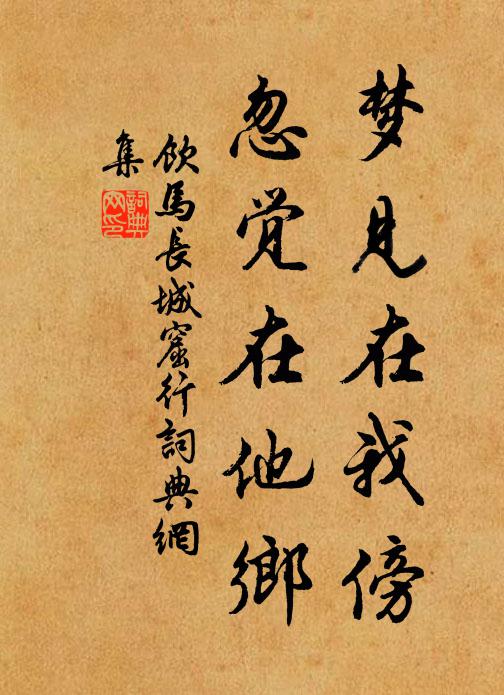 梦见在我傍
忽觉在他鄉
飲馬長城窟行詞典網
集
詞典
网印